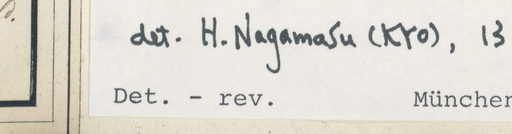 det. H. Nagamasu (KYO), 13
Det. - rev. München